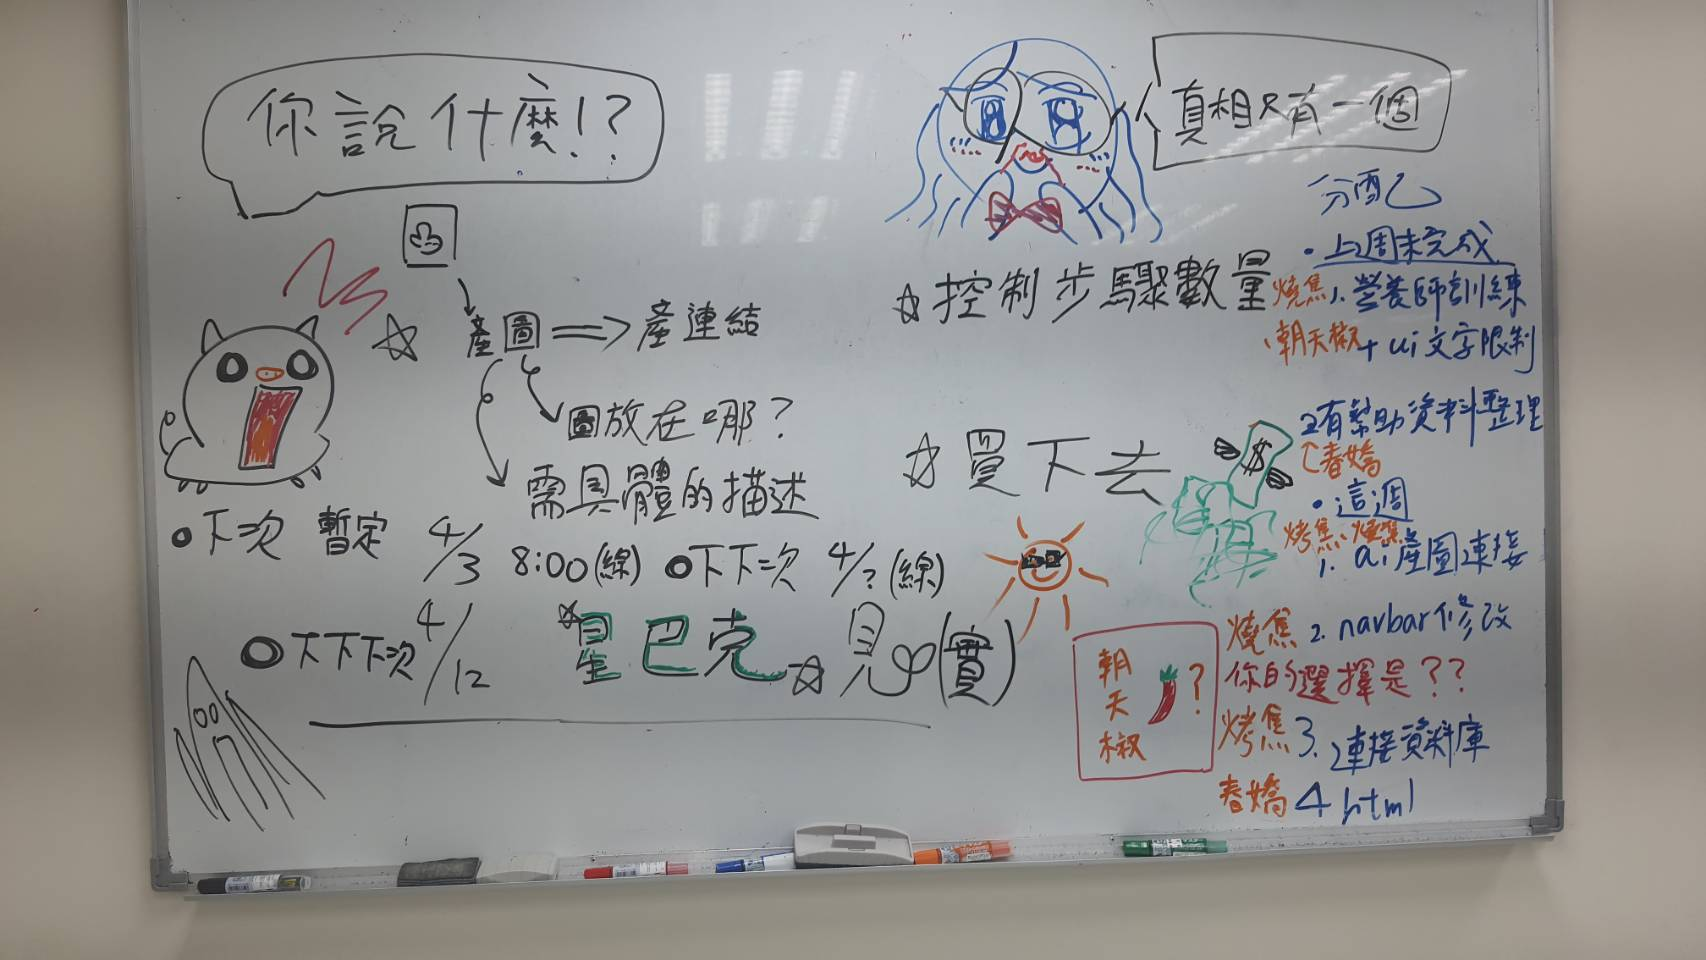 你說什麼!?
產圖 => 產連結
圖放在哪?
需具體的描述
●下次 暫定 4/3 8:00(線) ●下下次 4/?(線)
●下下下次 4/12 星巴克☆見(實)
真相只有一個
☆控制步驟數量
☆買下去
$
分配
•上週未完成
燒焦 1.營養師訓練
朝天椒 + ui文字限制
2.有幫助資料整理
↑春嬌
•這週
烤焦、燒焦
1. ai產圖連接
燒焦 2. navbar修改
你的選擇是??
朝天椒?
烤焦 3.連接資料庫
春嬌 4 html